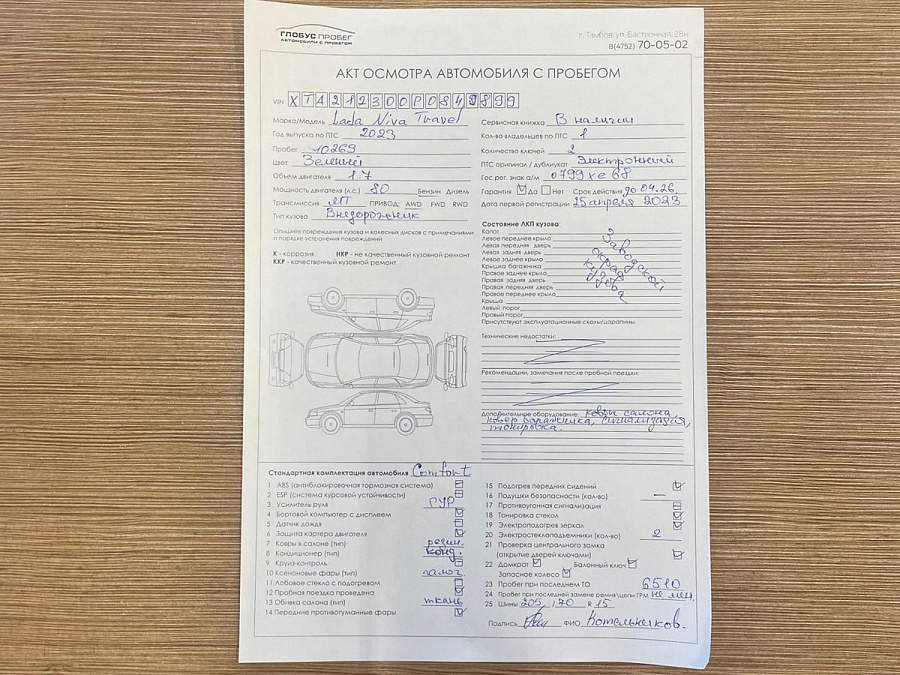 ГЛОБУС ПРОБЕГ
АВТОМОБИЛИ С ПРОБЕГОМ
г. Тамбов, ул. Бастионная, 28н
8(4752) 70-05-02
АКТ ОСМОТРА АВТОМОБИЛЯ С ПРОБЕГОМ
VIN XTA212300P0849899
Марка/Модель Lada Niva Travel
Год выпуска по ПТС 2023
Пробег 10269
Цвет Зеленый
Объем двигателя 1.7
Мощность двигателя (л.с.) 80 Бензин Дизель
Трансмиссия МТ ПРИВОД: AWD FWD RWD
Тип кузова Внедорожник
Сервисная книжка В наличии
Кол-во владельцев по ПТС 1
Количество ключей 2
ПТС оригинал / дубликат Электронный
Гос.рег. знак а/м о799хе68
Гарантия Да Нет Срок действия до 04.26
Дата первой регистрации 25 апреля 2023
Опишите повреждения кузова и колесных дисков с примечаниями
о порядке устранения повреждений
К - коррозия НКР - не качественный кузовной ремонт
ККР - качественный кузовной ремонт
Состояние ЛКП кузова:
Капот
Левое переднее крыло
Левая передняя дверь
Левая задняя дверь
Левое заднее крыло
Крышка багажника
Правое заднее крыло
Правая задняя дверь
Правая передняя дверь
Правое переднее крыло
Крыша
Левый порог
Правый порог
Заводской
окрас
кузова
Присутствуют эксплуатационные сколы/царапины.
Технические недостатки:
Рекомендации, замечания после пробной поездки:
Дополнительное оборудование: ковры салона,
ковер багажника, сигнализация,
тонировка.
Стандартная комплектация автомобиля Comfort
1 ABS (антиблокировочная тормозная система)
2 ESP (система курсовой устойчивости)
3 Усилитель руля ГУР
4 Бортовой компьютер с дисплеем
5 Датчик дождя
6 Защита картера двигателя
7 Ковры в салоне (тип) резин.
8 Кондиционер (тип) конд.
9 Круиз-контроль
10 Ксеноновые фары (тип) галог.
11 Лобовое стекло с подогревом
12 Пробная поездка проведена
13 Обивка салона (тип) ткань
14 Передние противотуманные фары
15 Подогрев передних сидений
16 Подушки безопасности (кол-во) —
17 Противоугонная сигнализация
18 Тонировка стекол
19 Электроподогрев зеркал
20 Электростеклоподъемники (кол-во) 2
21 Проверка центрального замка
(открытие дверей ключами)
22 Домкрат Балонный ключ
Запасное колесо
23 Пробег при последнем ТО 6510
24 Пробег при последней замене ремня\цепи ГРМ не мен.
25 Шины 205 / 70 R 15
Подпись ФИО Котельников.